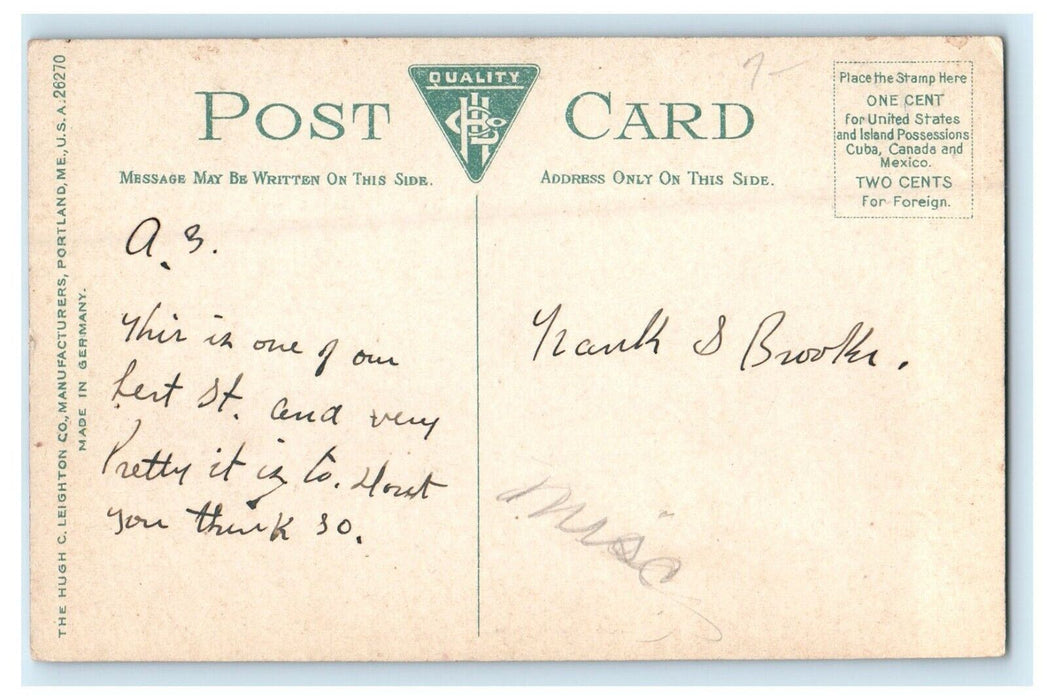 THE HUGH C. LEIGHTON CO., MANUFACTURERS, PORTLAND, ME., U.S.A. 26270
MADE IN GERMANY.
QUALITY
POST CARD
MESSAGE MAY BE WRITTEN ON THIS SIDE.
ADDRESS ONLY ON THIS SIDE.
Place the Stamp Here
ONE CENT
for United States
and Island Possessions
Cuba, Canada and
Mexico.
TWO CENTS
For Foreign.
A. 3.
This is one of our
best St. and very
Pretty it is to. Dont
you think so.
Frank S Brooks.
misc